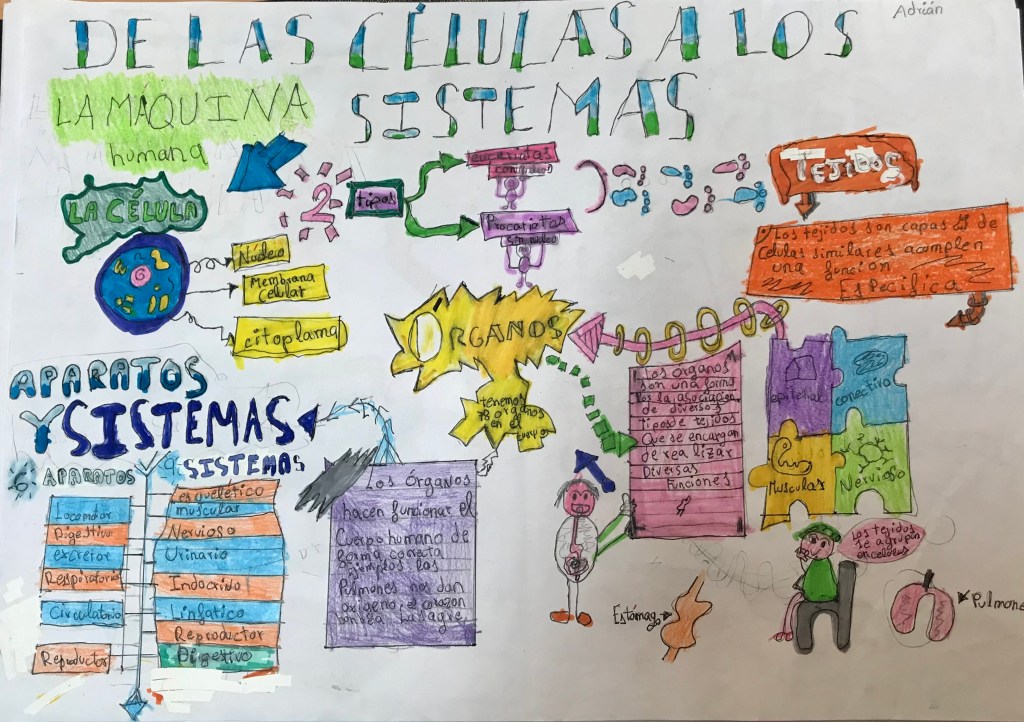 Adrián
DE LAS CÉLULAS A LOS
SISTEMAS
LA MÁQUINA
humana
LA CÉLULA
Nucleo
Membrana
Celular
citoplama
2
tipos
con nucleo
Procariotas
sin nucleo
TEJIDOS
Los tejidos son capas de
Celulas similares acomplen
una función
Especifica
ORGANOS
tenemos
78 organos
en el
Los organos
son una
la asociación
de diversos
tipos de tejidos
Que se encargan
de realizar
Diversas
Funciones
epitelial
conectivo
Musculas
Nervioso
APARATOS
Y SISTEMAS
6 APARATOS
Locomotor
Digestivo
excretor
Respiratorio
Circulatorio
Reproductor
9 SISTEMAS
esquelético
muscular
Nervioso
Urinario
Indocrino
Linfatico
Reproductor
Digestivo
Los Órganos
hacen funcionar el
Cuerpo humano de
forma correta
ejemplos los
Pulmones nos dan
oxigeno, el corazon
Los tejidos
se agrupan
Estómago
Pulmone